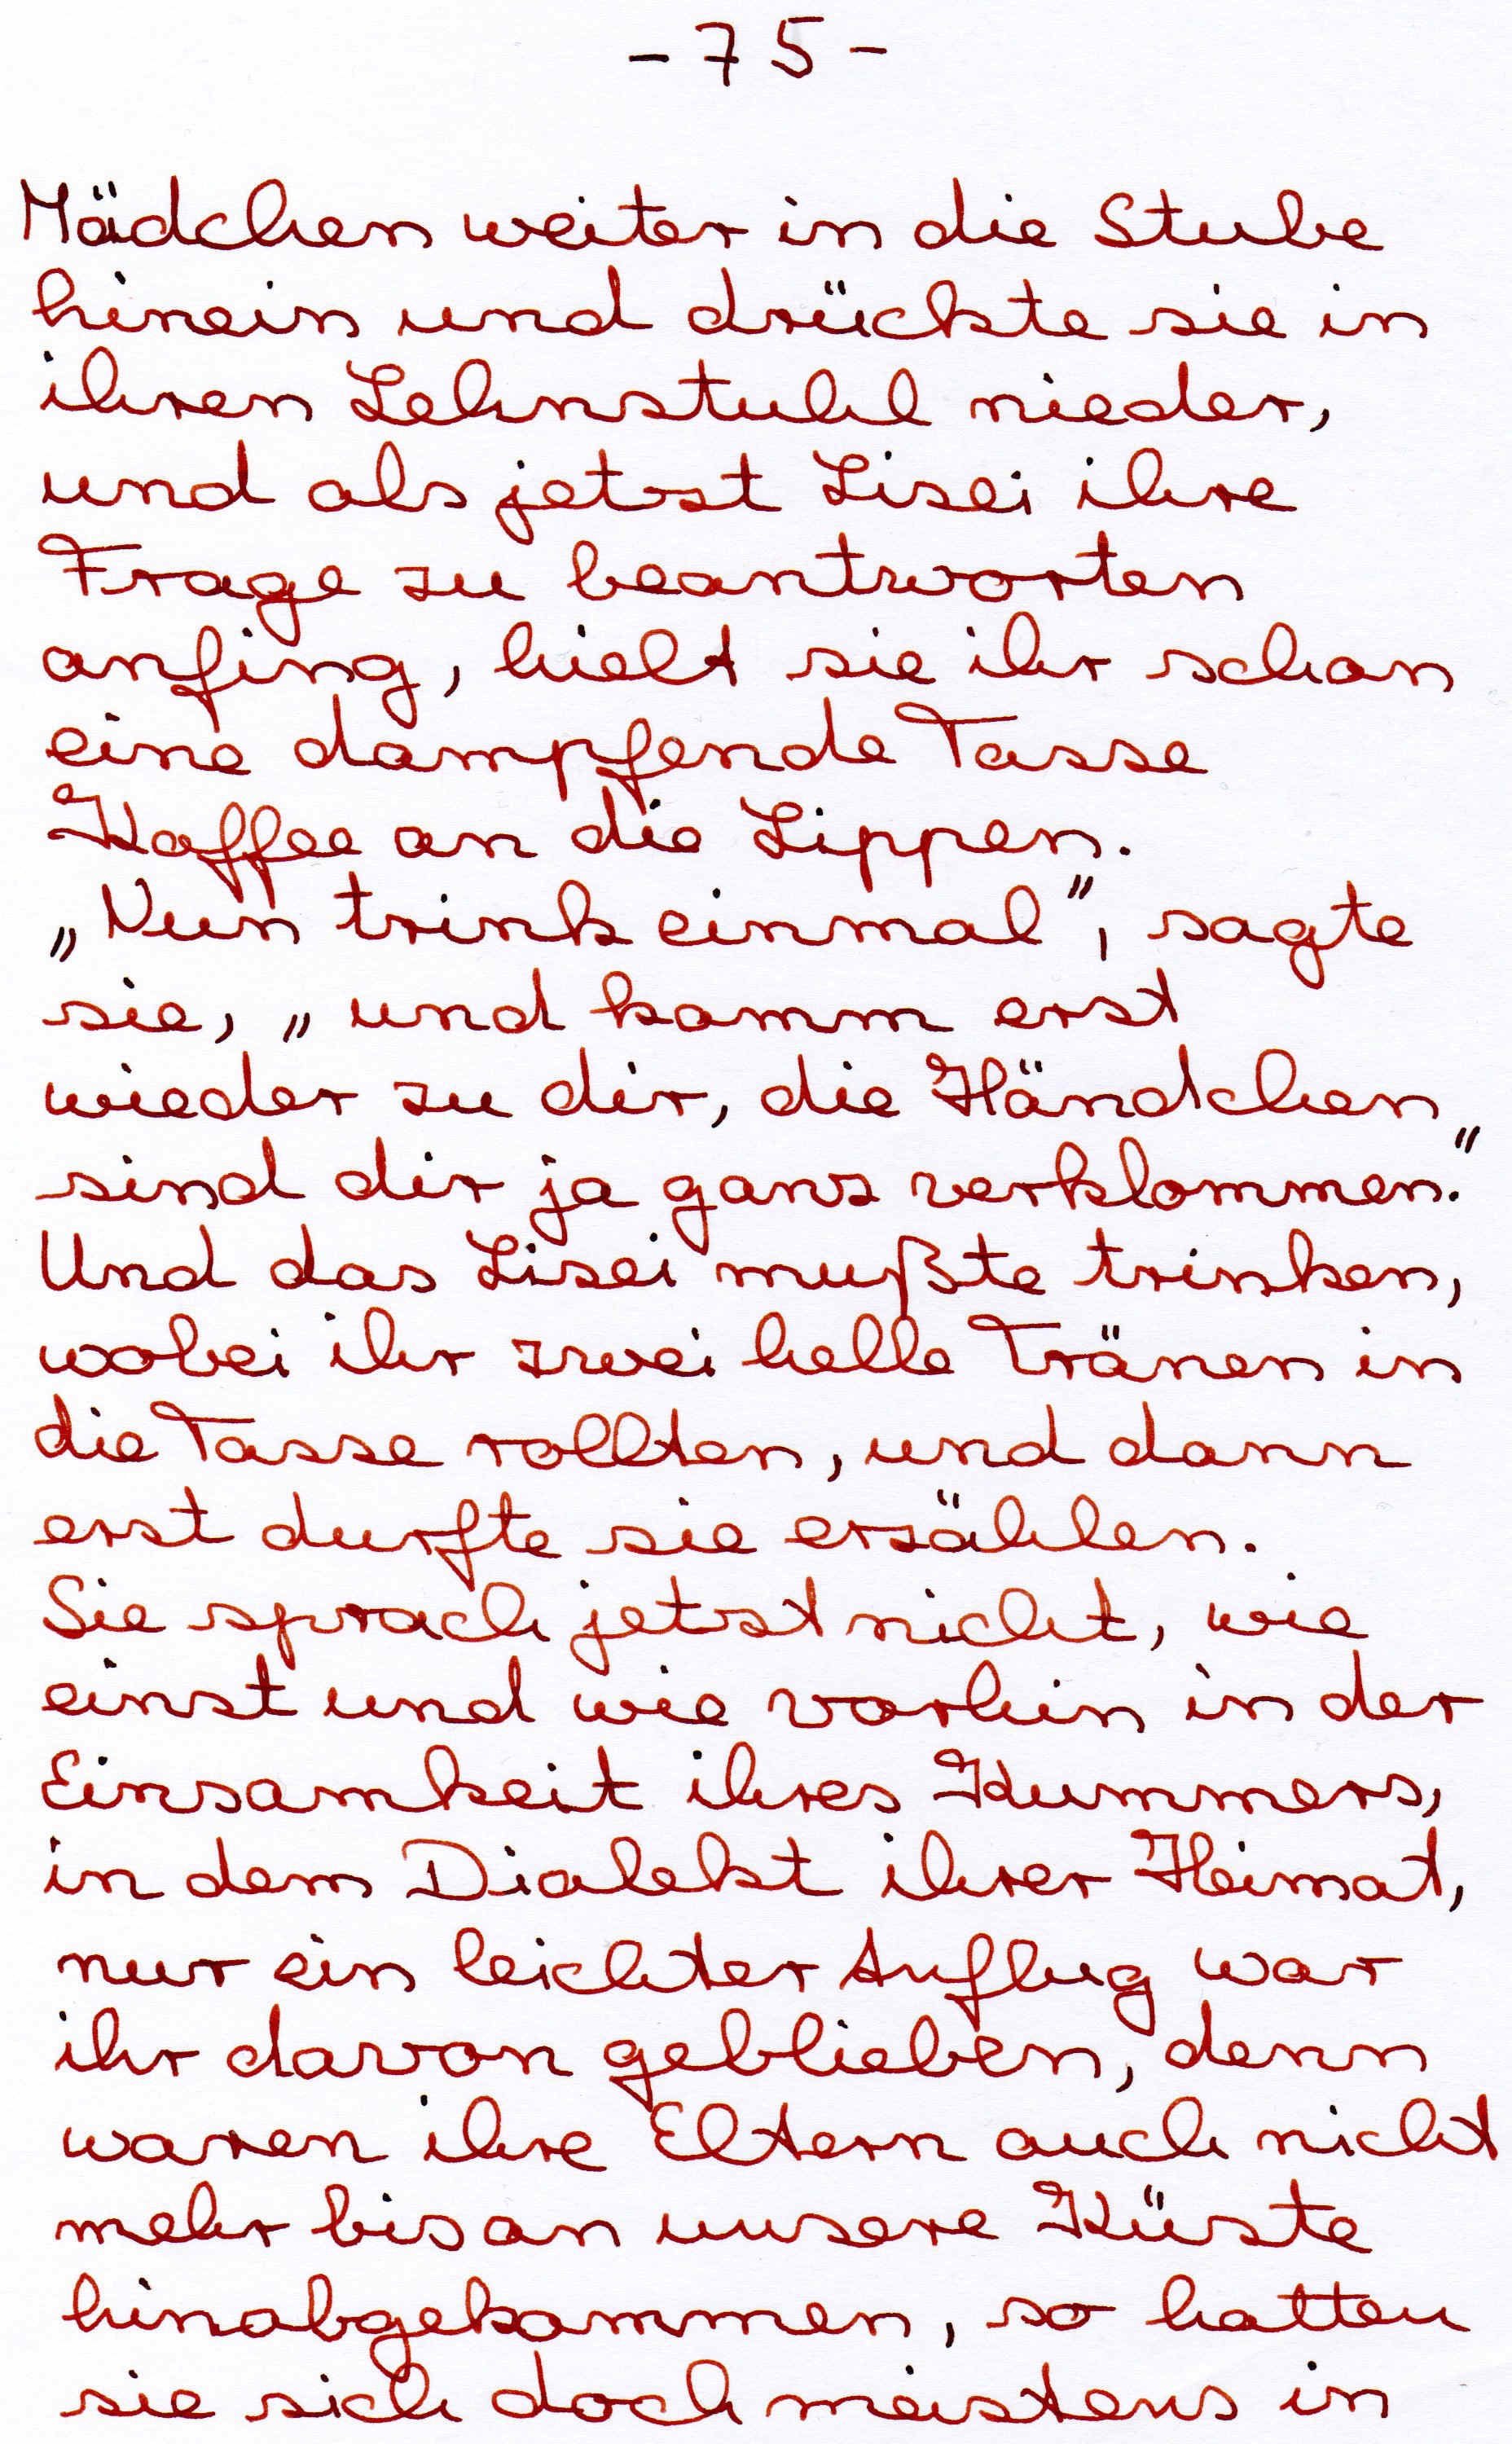 - 75 -
Mädchen weiter in die Stube
hinein und drückte sie in
ihren Lehnstuhl nieder,
und als jetzt Lisei ihre
Frage zu beantworten
anfing, hielt sie ihr schon
eine dampfende Tasse
Kaffee an die Lippen.
„Nun trink einmal", sagte
sie, „und komm erst
wieder zu dir, die Händchen
sind dir ja ganz verklommen."
Und das Lisei mußte trinken,
wobei ihr zwei helle Tränen in
die Tasse rollten, und dann
erst durfte sie erzählen.
Sie sprach jetzt nicht, wie
einst und wie vorhin in der
Einsamkeit ihres Kummers,
in dem Dialekt ihrer Heimat,
nur ein leichter Anflug war
ihr davon geblieben, denn
waren ihre Eltern auch nicht
mehr bis an unsere Küste
hinabgekommen, so hatten
sie sich doch meistens in